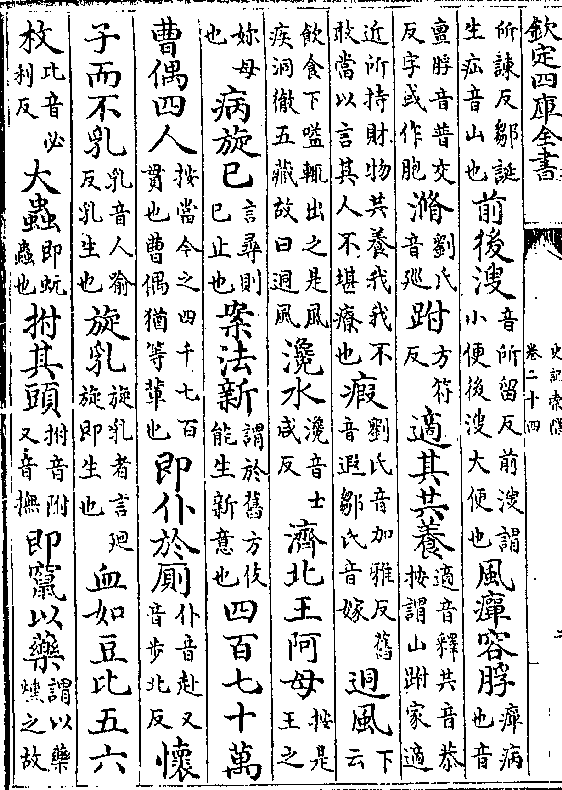 欽定四庫全書
史記索隱
卷二十四
所諫反鄒誕生疝音山也前後溲音所留反前溲謂小便後溲大便也風癉容脬癉病也音
亶脬音普交反字或作胞滫劉氏音巡跗方符反適其共養適音釋共音恭按謂山跗家適
近所持財物共養我我不敢當以言其人不堪療也瘕劉氏音加雅反舊音遐鄒氏音嫁迵風下云
飲食下嗌輒出之是風疾洞徹五藏故曰迵風瀺水瀺音士咸反濟北王阿母按是王之
妳母也病旋已言尋則已止也案法新謂於舊方伎能生新意也四百七十萬
曹偶四人按當今之四千七百貫也曹偶猶等輩也即仆於厠仆音赴又音步北反懷
子而不乳乳音人喻反乳生也旋乳旋乳者言迴旋即生也血如豆比五六
枚比音必利反大蟲即蚘蟲也拊其頭拊音附又音撫即竄以藥謂以藥燻之故